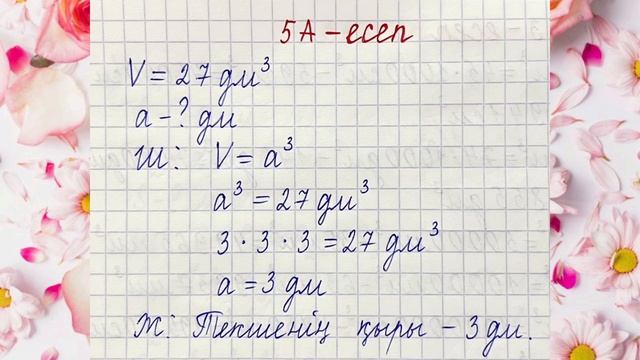 5А - есеп
V = 27 дм³
а - ? дм
Ш: V = a³
a³ = 27 дм³
3 · 3 · 3 = 27 дм³
a = 3 дм
Ж: Текшенің қыры - 3 дм.